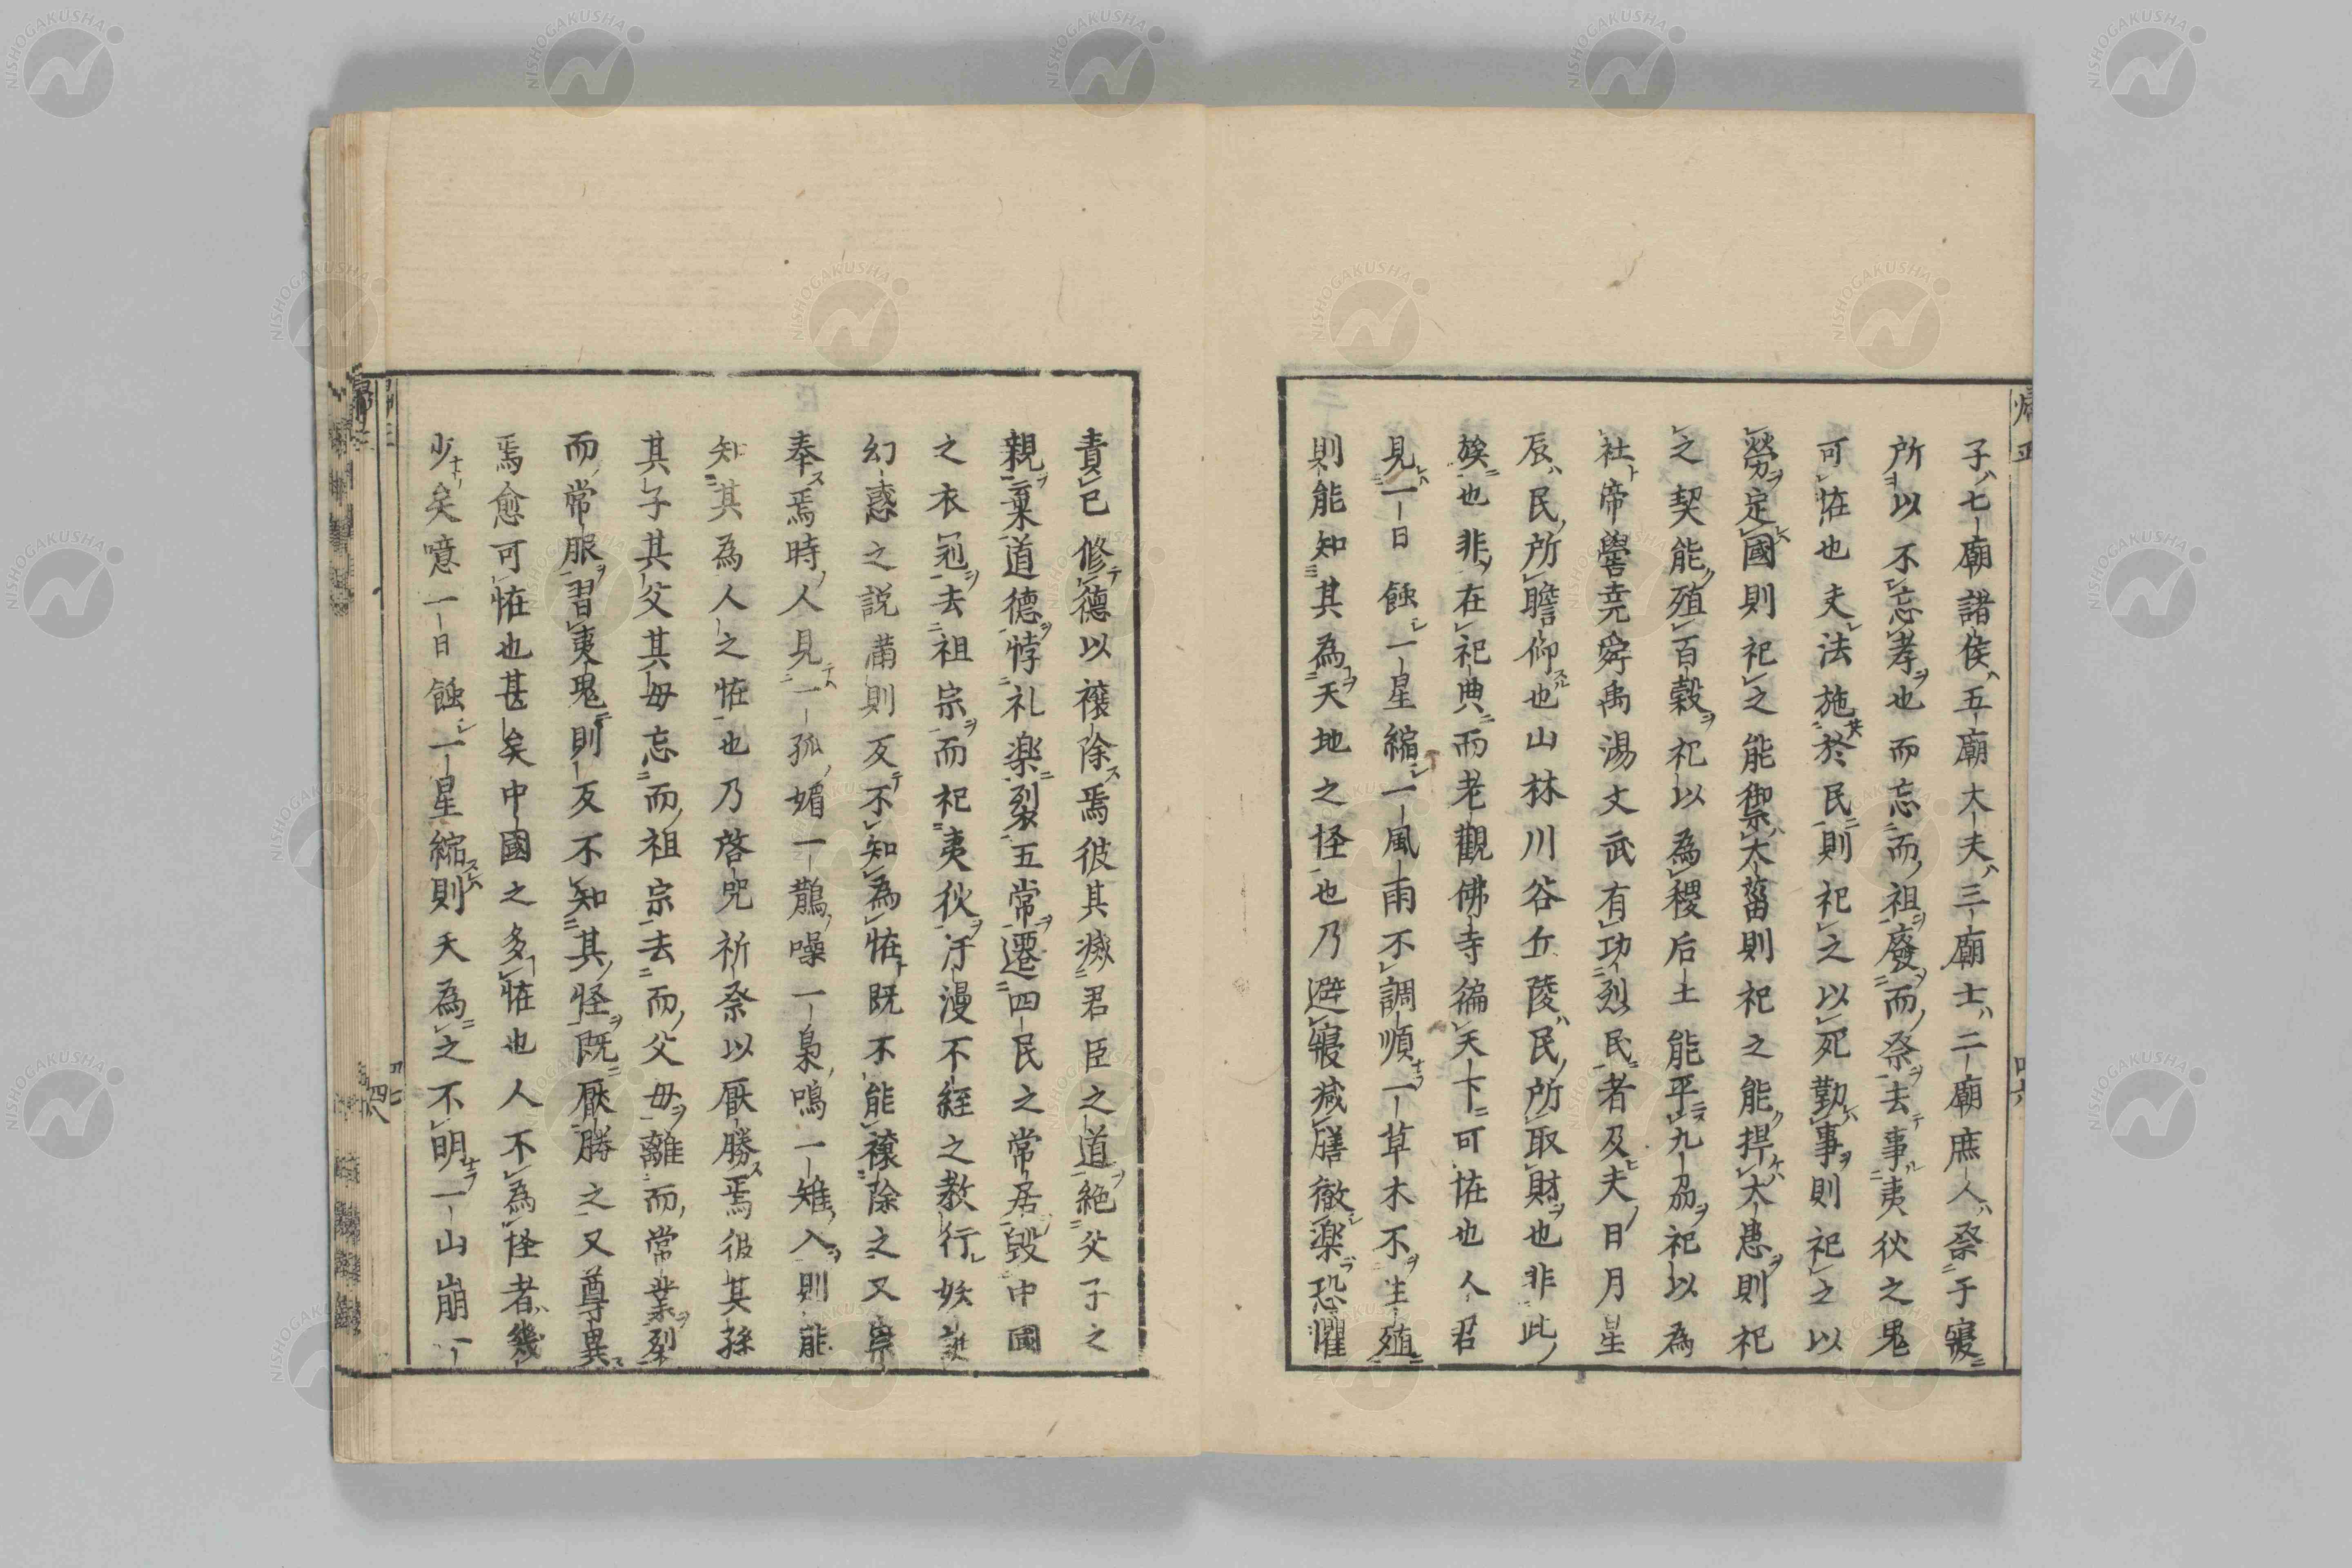 子七廟諸侯五廟大夫三廟士二廟庶人祭于寢
所以不忘孝也而忘而祖廢而祭去事夷狄之鬼
可恠也夫法施於民則祀之以死勤事則祀之以
勞定國則祀之能禦大菑則祀之能捍大患則祀
之契能殖百穀祀以為稷后土能平九州祀以為
社帝嚳堯舜禹湯文武有功烈民者及夫日月星
辰民所瞻仰也山林川谷丘陵民所取財也非此
族也非在祀典而老觀佛寺徧天下可恠也人君
見一日蝕一星縮一風雨不調順一草木不生殖
則能知其為天地之怪也乃避寢減膳徹楽恐懼
責已修德以禳除焉彼其滅君臣之道絶父子之
親棄道德悖礼楽裂五常遷四民之常居毀中國
之衣冠去祖宗而祀夷狄汙漫不經之教行妖誕
幻惑之説蒲則反不知為恠既不能禳除之又崇
奉焉時人見一狐媚一鵲噪一梟鳴一雉入則能
知其為人之恠也乃啓咒祈祭以厭勝焉彼其孫
其子其父其母忘而祖宗去而父母離而常業裂
而常服習夷鬼則反不知其怪既厭勝之又尊異
焉愈可恠也甚矣中國之多恠也人不為怪者幾
少矣噫一日蝕一星縮則天為之不明一山崩一
帰正
四六
四七
四八
NISHOGAKUSHA